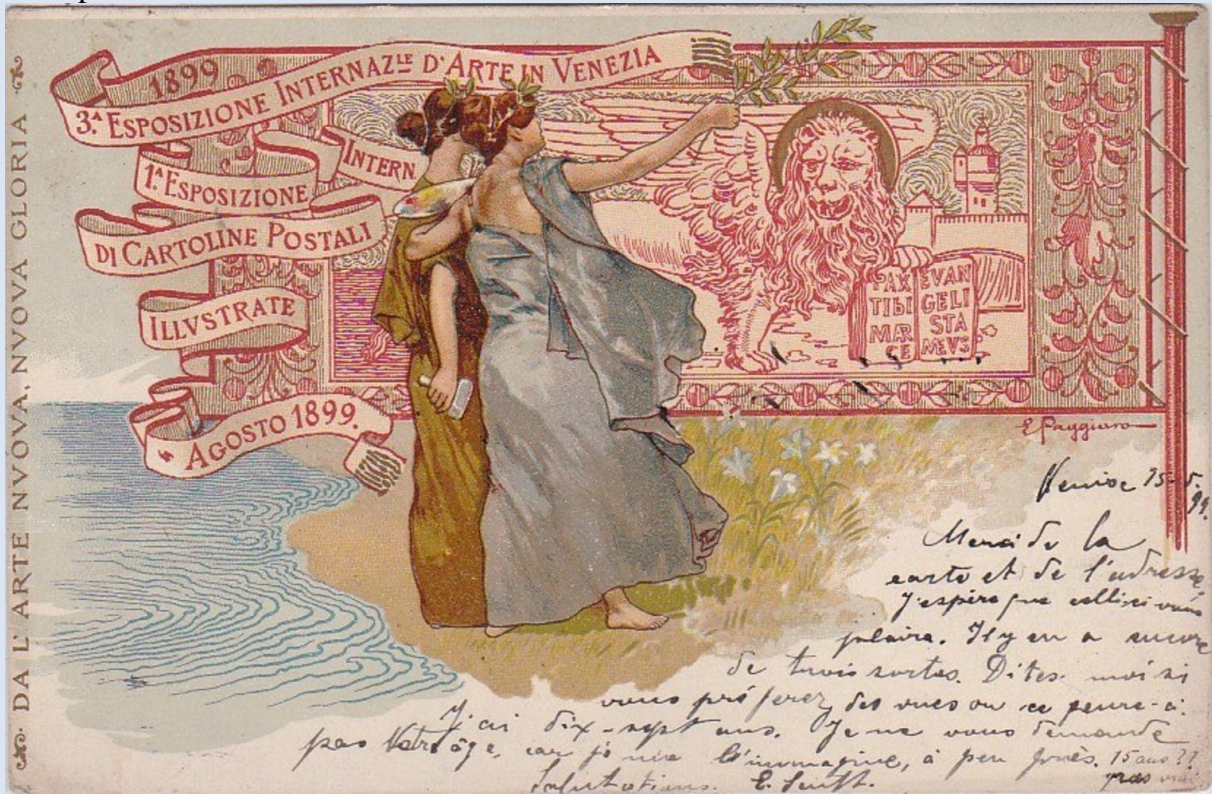 DA L'ARTE NVOVA, NVOVA GLORIA
1899
3.ᴬ ESPOSIZIONE INTERNAZᴸᴱ D'ARTE IN VENEZIA
1.ᴬ ESPOSIZIONE INTERN.
DI CARTOLINE POSTALI
ILLVSTRATE
AGOSTO 1899.
PAX
TIBI
MAR
CE
EVAN
GELI
STA
MEVS
E. Paggiaro
Venise 15. 5. 99.
Merci de la
carte et de l'adresse,
J'espère que celle ci vous
plaira. Il y en a encore
de trois sortes. Dites-moi si
vous préferez des vues ou ce genre-ci.
J'ai dix-sept ans. Je ne vous demande
pas Votre âge, car je me l'immagine, à peu près. 15 ans ??
pas vrai
Salutations. E.